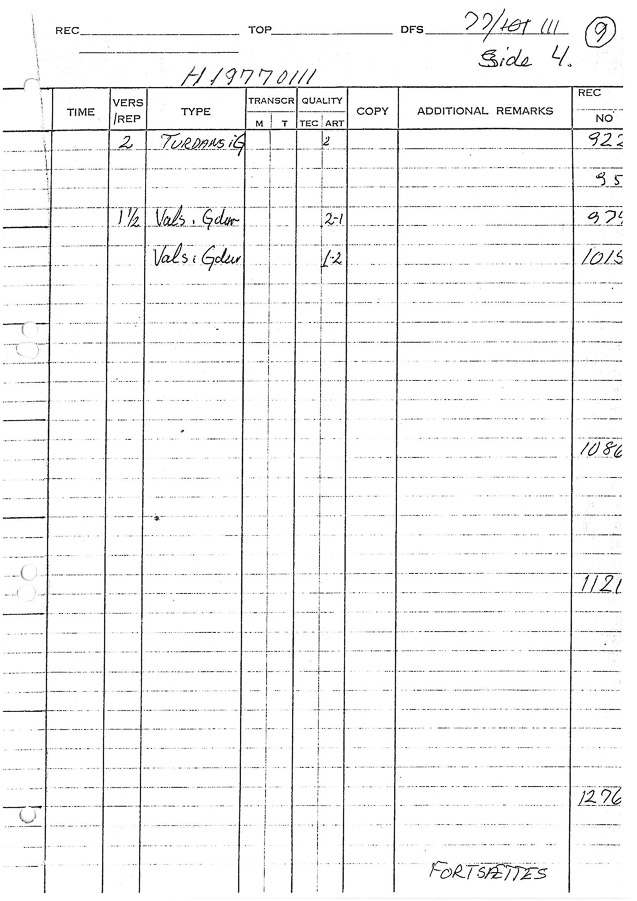 REC TOP DFS 77/ III 9
Side 4.
H19770111
TIME VERS/REP TYPE TRANSCR M T QUALITY TEC ART COPY ADDITIONAL REMARKS REC NO
2 TURDANS i G 2 922
95
1 1/2 Vals i Gdur 2-1 979
Vals i Gdur 1-2 1015
1086
1121
1276
FORTSÆTTES